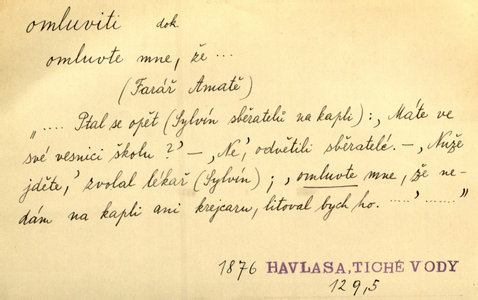 omluviti dok.
omluvte mne, že ...
(Farář Amatě)
„..... Ptal se opět (Sylvín sběratelů na kapli): ‚Máte ve
své vesnici školu?' – ‚Ne', odvětili sběratelé. – ‚Nuže
jděte,' zvolal lékař (Sylvín); ‚omluvte mne, že ne-
dám na kapli ani krejcaru, litoval bych ho. .....' ......."
1876 HAVLASA, TICHÉ VODY
129,5